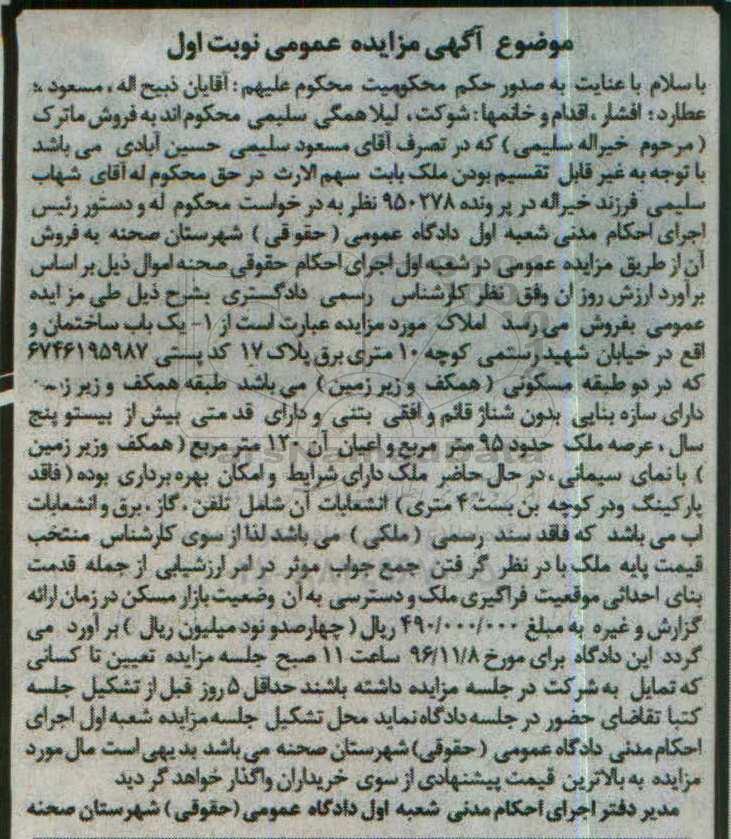 موضوع آگهی مزایده عمومی نوبت اول
با سلام با عنایت به صدور حکم محکومیت محکوم علیهم : آقایان ذبیح اله ، مسعود ،
عطارد ؛ افشار ، اقدام و خانمها : شوکت ، لیلا همگی سلیمی محکوم اند به فروش ماترک
( مرحوم خیراله سلیمی ) که در تصرف آقای مسعود سلیمی حسین آبادی می باشد
با توجه به غیر قابل تقسیم بودن ملک بابت سهم الارث در حق محکوم له آقای شهاب
سلیمی فرزند خیراله در پر ونده ۹۵۰۲۷۸ نظر به در خواست محکوم له و دستور رئیس
اجرای احکام مدنی شعبه اول دادگاه عمومی ( حقو قی ) شهرستان صحنه به فروش
آن از طریق مزایده عمومی در شعبه اول اجرای احکام حقوقی صحنه اموال ذیل بر اساس
برآورد ارزش روز ان وفق نظر کارشناس رسمی دادگستری بشرح ذیل طی مز ایده
عمومی بفروش می رسد املاک مورد مزایده عبارت است از ۱- یک باب ساختمان و
اقع در خیابان شهید رستمی کوچه ۱۰ متری برق پلاک ۱۷ کد پستی ۶۷۴۶۱۹۵۹۸۷
که در دو طبقه مسکونی ( همکف و زیر زمین ) می باشد طبقه همکف و زیر زمین
دارای سازه بنایی بدون شناژ قائم و افقی بتنی و دارای قد متی بیش از بیستو پنج
سال ، عرصه ملک حدود ۹۵ متر مربع و اعیان آن ۱۲۰ متر مربع ( همکف وزیر زمین
) با نمای سیمانی ، در حال حاضر ملک دارای شرایط و امکان بهره برداری بوده ( فاقد
پارکینگ ودر کوچه بن بست ۴ متری ) انشعابات آن شامل تلفن ، گاز ، برق و انشعابات
اب می باشد که فاقد سند رسمی ( ملکی ) می باشد لذا از سوی کارشناس منتخب
قیمت پایه ملک با در نظر گر فتن جمع جواب موثر در امر ارزشیابی از جمله قدمت
بنای احداثی موقعیت فراگیری ملک و دسترسی به آن وضعیت بازار مسکن در زمان ارائه
گزارش و غیره به مبلغ ۴۹۰/۰۰۰/۰۰۰ ریال ( چهارصدو نود میلیون ریال ) بر آورد می
گردد این دادگاه برای مورخ ۹۶/۱۱/۸ ساعت ۱۱ صبح جلسه مزایده تعیین تا کسانی
که تمایل به شرکت در جلسه مزایده داشته باشند حداقل ۵ روز قبل از تشکیل جلسه
کتبا تقاضای حضور در جلسه دادگاه نماید محل تشکیل جلسه مزایده شعبه اول اجرای
احکام مدنی دادگاه عمومی ( حقوقی) شهرستان صحنه می باشد بد یهی است مال مورد
مزایده به بالاترین قیمت پیشنهادی از سوی خریداران واگذار خواهد گر دید
مدیر دفتر اجرای احکام مدنی شعبه اول دادگاه عمومی (حقوقی ) شهرستان صحنه